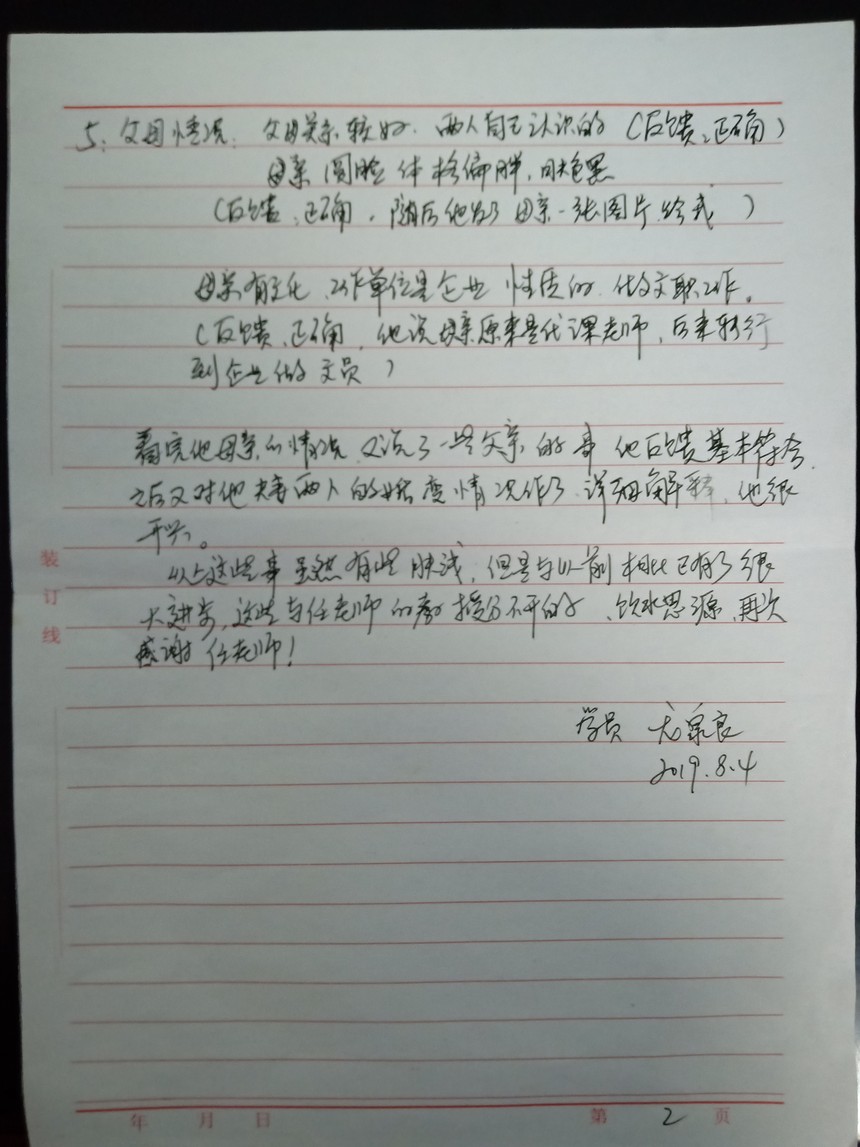 5、父母情况: 父母关系较好、两人自己认识的 (反馈:正确)
母亲 圆脸 体格偏胖,肤色黑
(反馈:正确,随后他发了母亲一张图片给我)
母亲有文化、工作单位是企业性质的、做文职工作。
(反馈:正确,他说母亲原来是代课老师,后来转行
到企业做文员)
看完他母亲的情况 又说了一些父亲的事 他反馈基本符合.
之后又对他夫妻两人的婚变情况作了详细解释,他很
开兴。
以上这些事虽然有些肤浅,但是与以前相比已有了很
大进步,这些与任老师的教授分不开的、饮水思源,再次
感谢任老师!
学员 尤泉良
2019.8.4
装订线
年 月 日 第 2 页